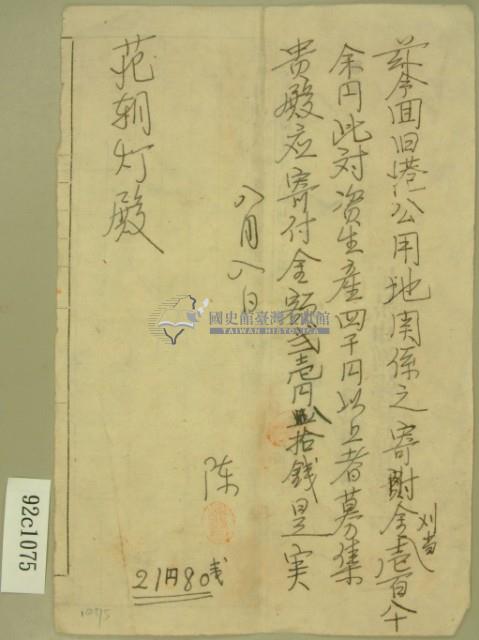 茲今回旧港公用地関係之寄附金割当壱百八十
余円此対資生産四千円以上者募集
貴殿应寄付金額弍壱円八拾銭是実
八月八日
陈
范朝灯殿
21円80銭
國史館臺灣文獻館
TAIWAN HISTORICA
92c1075
1075